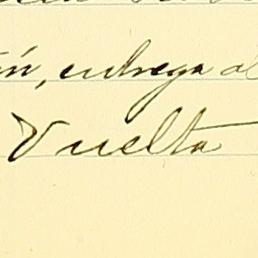 ón, entrega al
Vuelta